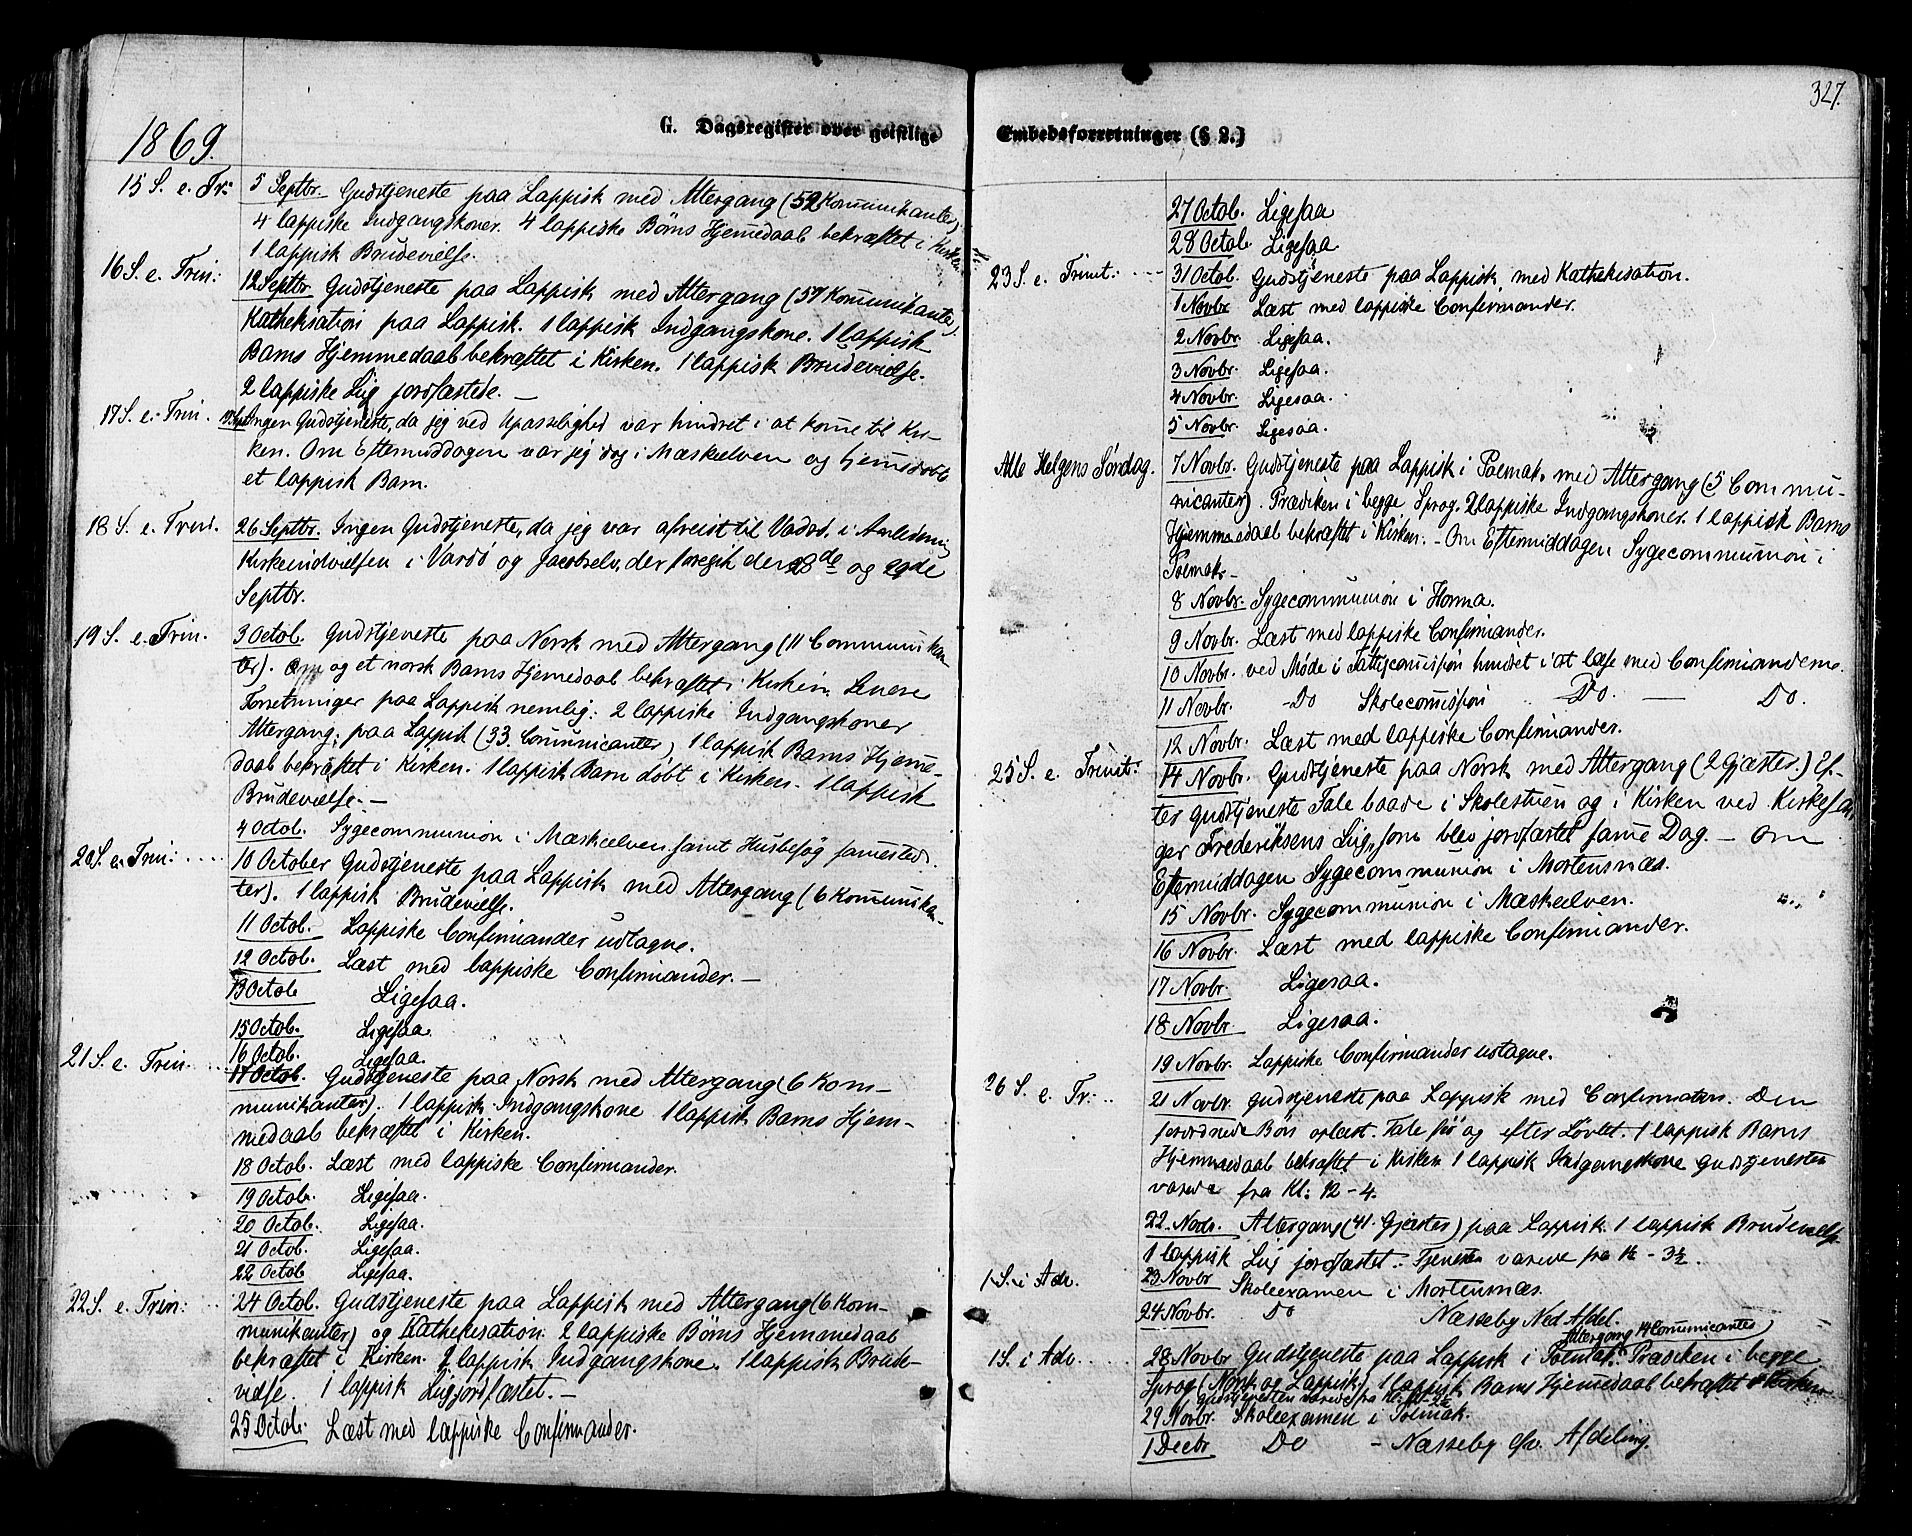 327.
G. Dagsregister over geistlige
Embedsforretninger (§ 2.)
1869.
15 S. e. Tr: 5 Septbr. Gudstjeneste paa Lappisk med Altergang (52 Kommunikanter)
4 lappiske Indgangskoner. 4 lappiske Børns Hjemmedaab bekræftet i Kirken.
1 lappisk Brudevielse.
16 S. e. Trin: 12 Septbr. Gudstjeneste paa Lappisk med Altergang (57 Kommunikanter).
Kathekisation paa Lappisk. 1 lappisk Indgangskone. 1 lappisk
Barns Hjemmedaab bekræftet i Kirken. 1 lappisk Brudevielse.
2 lappiske Liig jordfæstede. —
17 S. e. Trin. 19 Sept. Ingen Gudstjeneste, da jeg ved Upasselighed var hindret i at komme til Kir-
ken. Om Eftermiddagen var jeg dog i Mæskelven og hjemmedøbte
et lappisk Barn.
18 S. e. Trin. 26 Septbr. Ingen Gudstjeneste, da jeg var afreist til Vadsø i Anledning
Kirkeindvielsen i Vardø og Jacobselv, der foregik den 28de og 29de
Septbr.
19 S. e. Trin. 3 Octob. Gudstjeneste paa Norsk med Altergang (11 Communikan
ter). og et norsk Barns Hjemmedaab bekræftet i Kirken. Senere
Forretninger paa Lappisk nemlig: 2 lappiske Indgangskoner
Altergang paa Lappisk (33 Communicanter) 1 lappisk Barns Hjemme-
daab bekræftet i Kirken. 1 lappisk Barn døbt i Kirken. 1 lappisk
Brudevielse. —
4 Octob. Sygecommunion i Mæskelven samt Husbesøg sammested.
20 S. e. Trin: 10 October Gudstjeneste paa Lappisk med Altergang (6 Kommunikan-
ter). 1 lappisk Brudevielse.
11 Octob. Lappiske Confirmander udtagne.
12 Octob. Læst med lappiske Confirmander. —
13 Octob Ligesaa.
15 Octob. Ligesaa.
16 Octob. Ligesaa.
21 S. e. Trin. 17 Octob. Gudstjeneste paa Norsk med Altergang (6 Kom-
munikanter). 1 lappisk Indgangskone 1 lappisk Barns Hjem-
medaab bekræftet i Kirken.
18 Octob. Læst med lappiske Confirmander.
19 Octob. Ligesaa.
20 Octob. Ligesaa.
21 Octob. Ligesaa.
22 Octob Ligesaa.
22 S. e. Trin: 24 Octob. Gudstjeneste paa Lappisk med Altergang (6 Kom-
munikanter) og Kathekisation. 2 lappiske Børns Hjemmedaab
bekræftet i Kirken. 2 lappisk Indgangskone. 1 lappisk Brude-
vielse. 1 lappisk Lig jordfæstet. —
25 Octob. Læst med lappiske Confirmander.
27 Octob. Ligesaa
28 Octob. Ligesaa
23 S. e. Trinit: 31 Octob. Gudstjeneste paa Lappisk, med Kathekisation.
1 Novbr Læst med lappiske Confirmander.
2 Novbr. Ligesaa.
3 Novbr. Ligesaa.
4 Novbr. Ligesaa.
5 Novbr. Ligesaa.
Alle Helgens Søndag. 7 Novbr. Gudstjeneste paa Lappisk i Polmak. med Altergang (5 Commu-
nicanter). Prædiken i begge Sprog. 2 lappiske Indgangskoner. 1 lappisk Barns
Hjemmedaab bekræftet i Kirken. - Om Eftermiddagen Sygecommunion i
Polmak. —
8 Novbr. Sygecommunion i Horma.
9 Novbr. Læst med lappiske Confirmander.
10 Novbr. ved Møde i Fattigcomission hindret i at læse med Confirmanderne.
11 Novbr. - Do Skolecomission Do. — Do.
12 Novbr. Læst med lappiske Confirmander.
25 S. e. Trinit: 14 Novbr. Gudstjeneste paa Norsk med Altergang (2 Gjæster.) Ef-
ter Gudstjeneste Tale baade i Skolestuen og i Kirken ved Kirkesan-
ger Frederiksens Liig, som blev jordfæstet samme Dag. — Om
Eftermiddagen Sygecommunion i Mortensnæs.
15 Novbr. Sygecommunion i Mæskelven.
16 Novbr. Læst med lappiske Confirmander.
17 Novbr. Ligesaa.
18 Novbr. Ligesaa.
19 Novbr. Lappiske Confirmander udtagne.
26 S. e. Tr: 21 Novbr. Gudstjeneste paa Lappisk med Confirmation. Den
forordnede Bøn oplæst. Tale før og efter Løvtet. 1 lappisk Barns
Hjemmedaab bekræftet i Kirken 1 lappisk Indgangskone Gudstjenesten
varede fra Kl: 12 - 4.
22 Novbr. Altergang (41 Gjæster) paa Lappisk. 1 lappisk Brudevielse
1 lappisk Liig jordfæstet. Tjenesten varede fra 12 - 3½.
1 S. i Adv. 23 Novbr Skoleexamen i Mortensnæs.
24 Novbr. Do Næsseby Ned. Afdel.
Altergang 14 Comunicantes)
1 S. i Adv. 28 Novbr Gudstjeneste paa Lappisk i Polmak. Prædiken i begge
Sprog (Norsk og Lappisk.) 1 lappisk Barns Hjemmedaab bekræftet i Kirken
Gudstjenesten varede fra Kl.
29 Novbr. Skoleexamen i Polmak.
1 Decbr Do - Næsseby øvr. Afdeling.